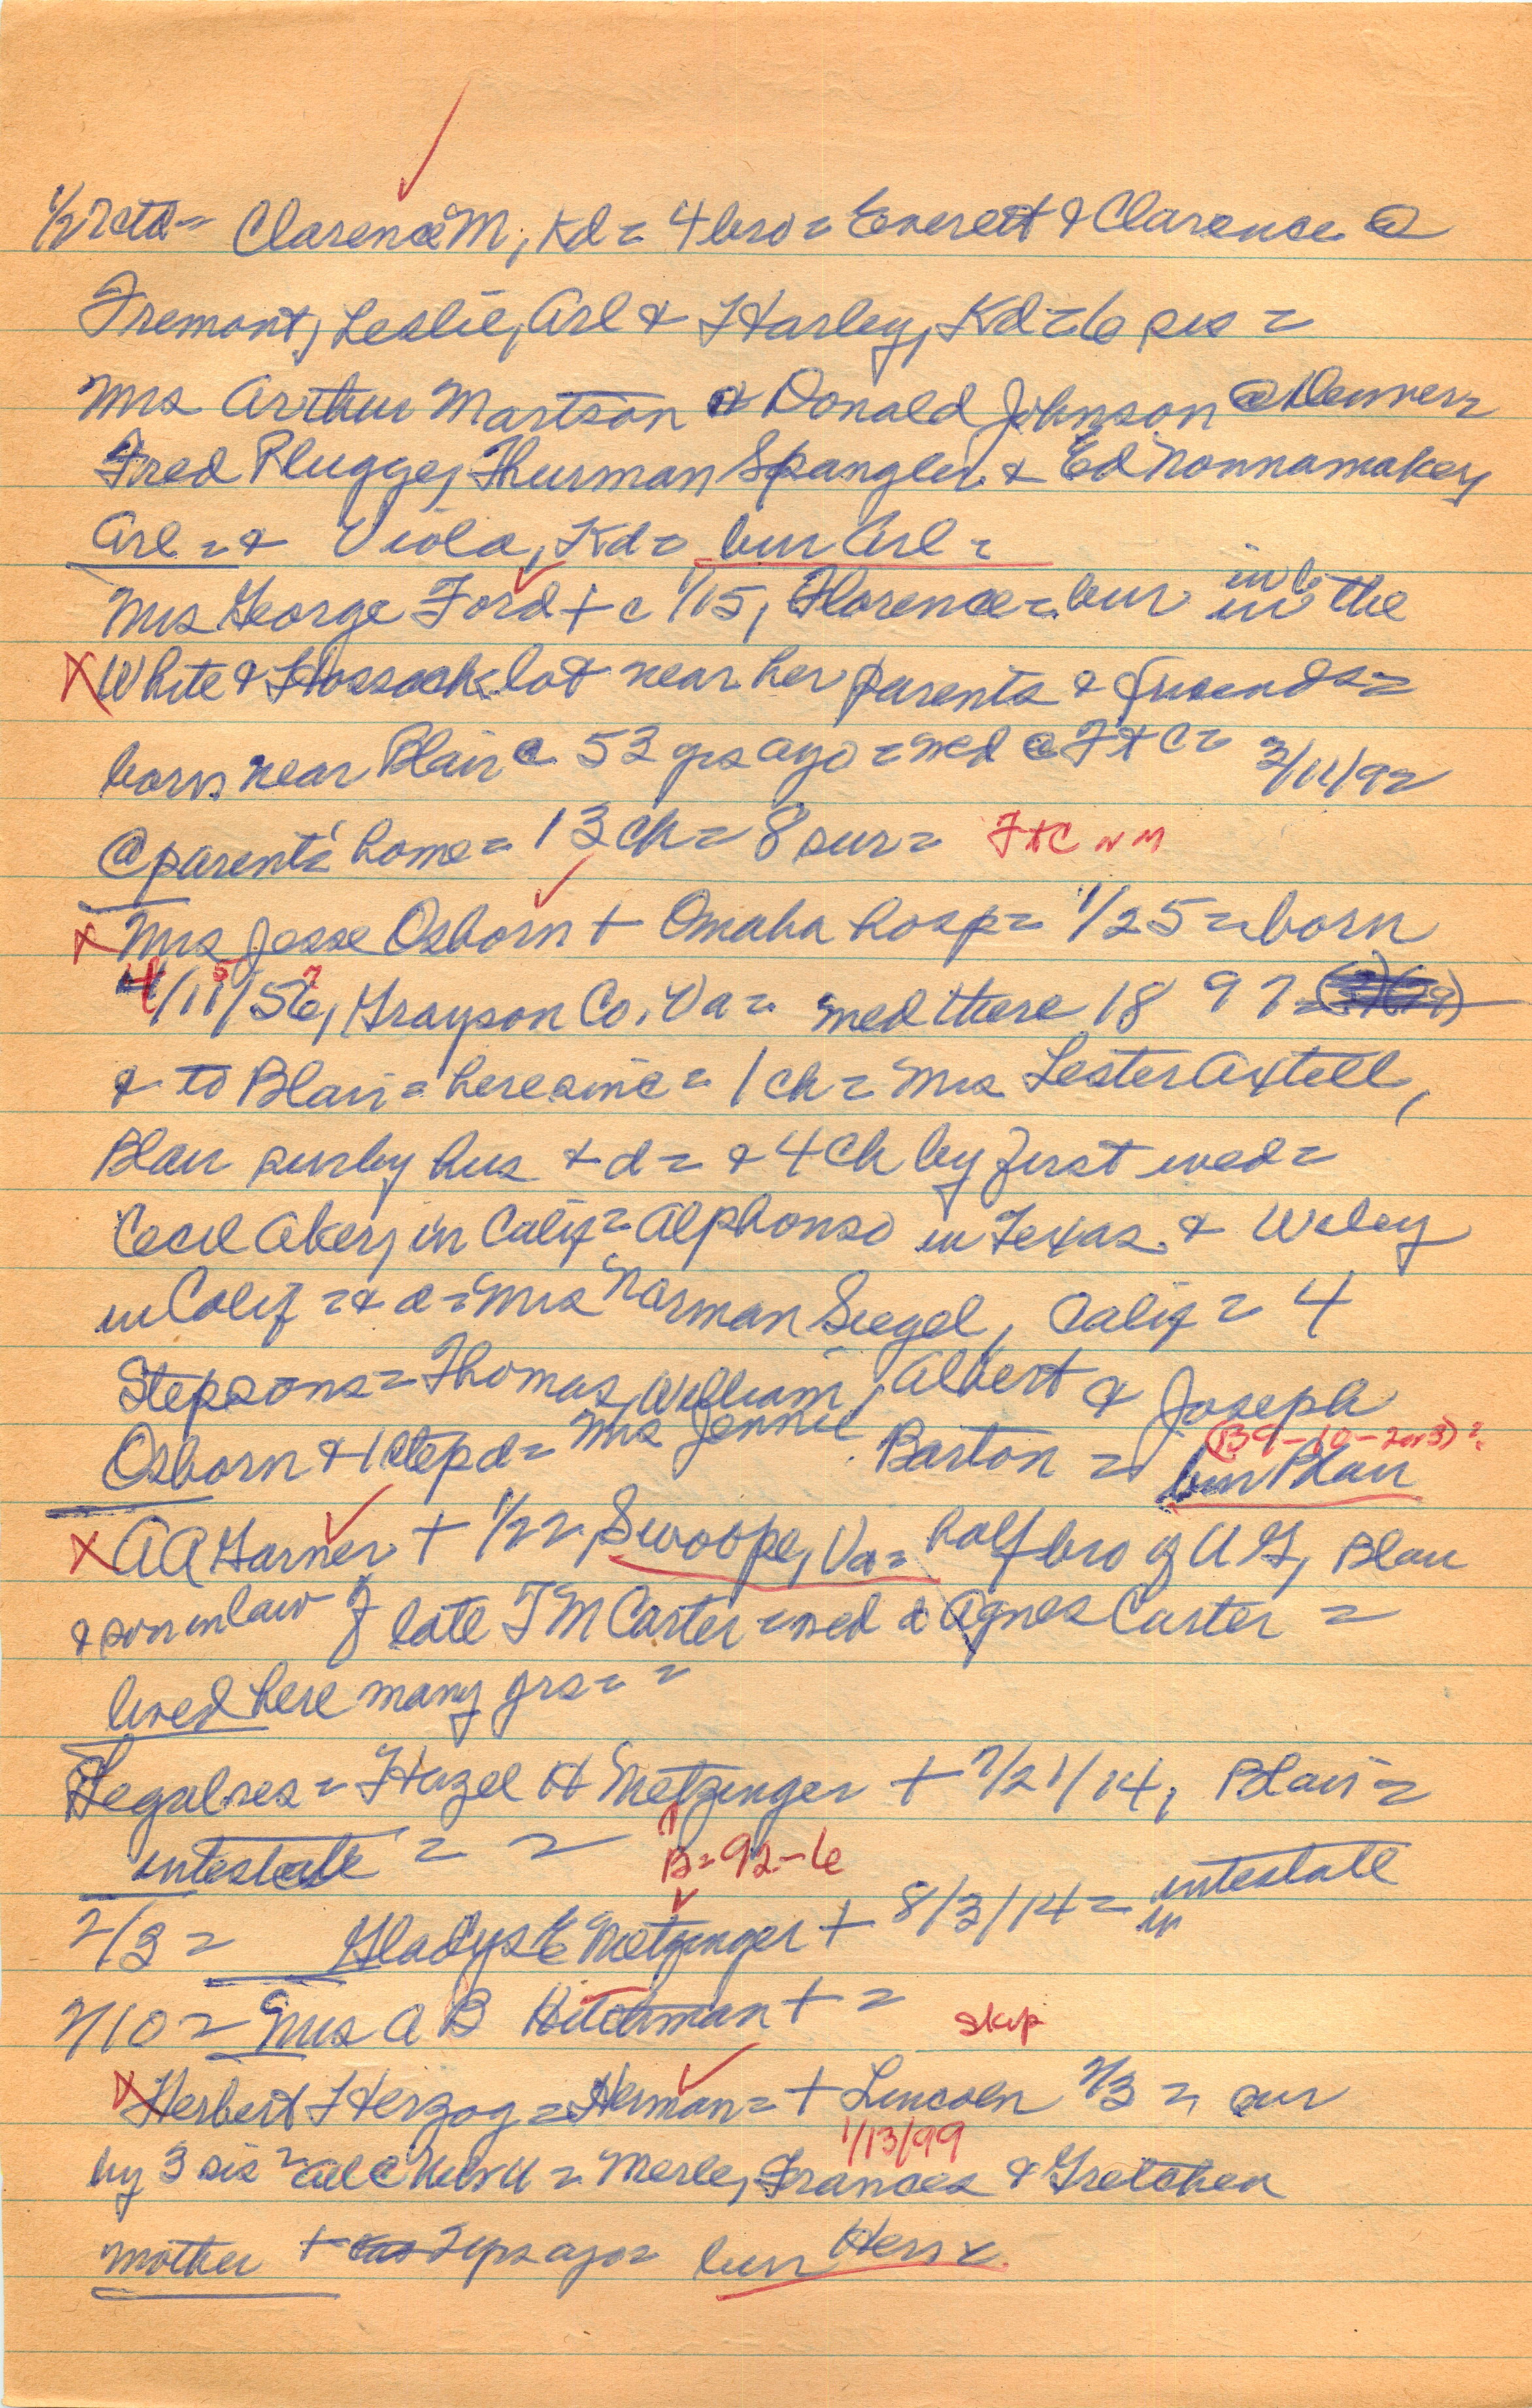 1/27 ctd = Clarence M, Kd = 4 bro = Everett & Clarence @
Fremont, Leslie, Arl & Harley, Kd = 6 sis =
Mrs Arthur Martson & Donald Johnson @ Denver =
Fred Plugge, Thurman Spangler & Ed Nonnamaker,
Arl = & Viola, Kd = bur Arl =
Mrs George Ford + c 1/15, Florence = bur in the
X White & lot near her parents & friends =
born near Blair c 53 yrs ago = med @ Ft C = 3/11/92
@ parents' home = 13 ch = 8 sur = Ft C N M
X Mrs Jesse Osborn + Omaha hosp = 1/25 = born
4/11/56, Grayson Co, Va = med there 18 97 =
& to Blair = here since = 1 ch = Mrs Lester Axtell,
Blair sur by hus & d = & 4 ch by first wed =
Cecil Akers in Calif = Alphonso in Texas & Wiley
in Calif = & d = Mrs Norman Siegel, Calif = 4
Stepsons = Thomas, William, Albert & Joseph
Osborn & 1 step d = Mrs Jennie Barton = bur Blair
(B9-10-2 or 3)?
X A A Garner + 1/22 Swoope, Va = half bro of A G, Blair
& son in law of late T M Carter = med d Agnes Carter =
lived here many yrs = =
Legal res = Hazel H Metzinger + 7/21/14, Blair =
intestate = = B = 92-6
2/3 = Gladys E Metzinger + 8/3/14 = intestate
2/10 = Mrs A B Hitchman + = skip
X Herbert Herzog = Herman = + Lincoln 2/3 = sur
1/13/99
by 3 sis = all = Merle, Frances & Gretchen
mother + yrs ago = bur